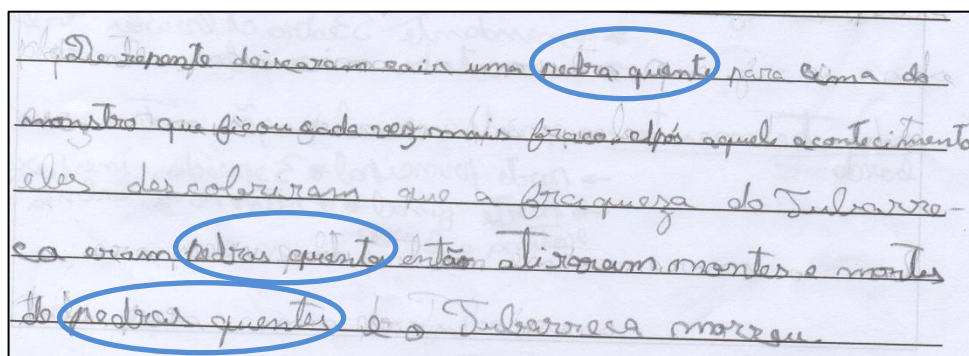 De repente deixaram cair uma pedra quente para cima do
monstro que ficou cada vez mais fraco, após aquele acontecimento
eles descobriram que a fraqueza do Tubarre-
ca eram pedras quentes então atiraram montes e montes
de pedras quentes e o Tubarreca morreu.